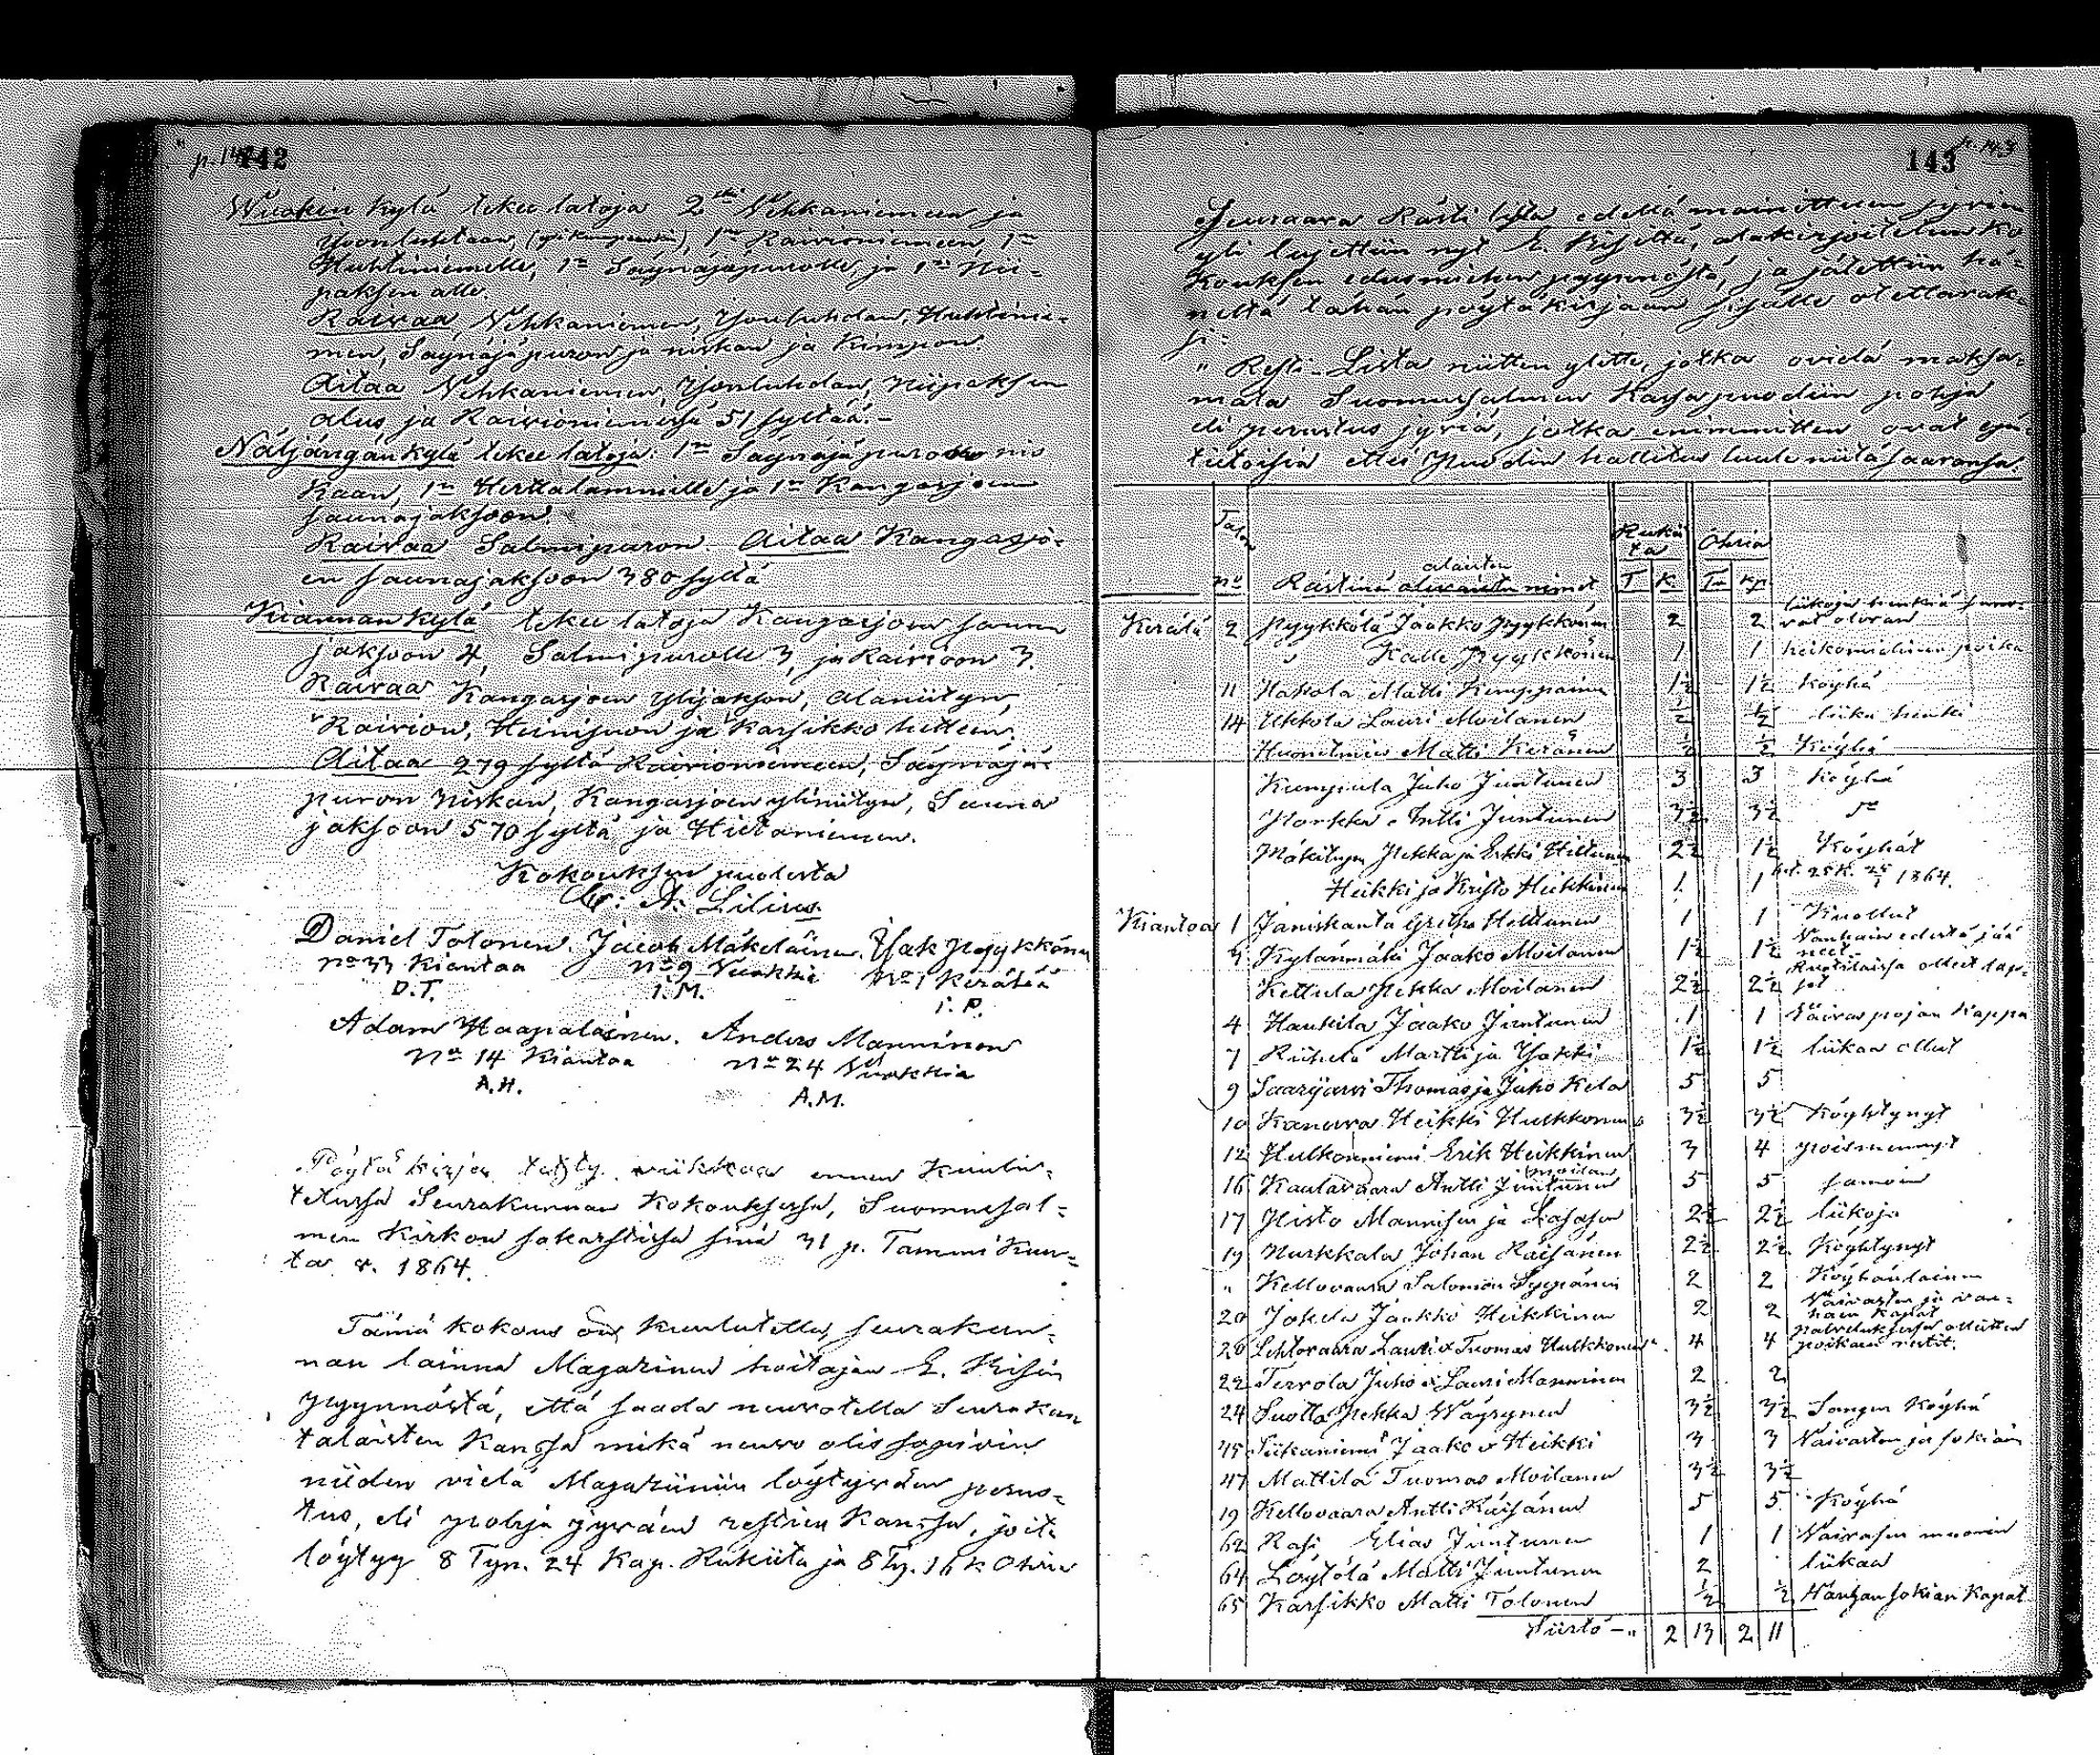 p. 142 142
Wuokin kylä tekee latoja 2 Vehkaniemeen ja
Isoonluhtaan, 1n Rairioniemeen 1n
Huhtiniemelle, 1n Säynäjäpurolle, ja 1n Nii-
paksen alle.
Raivaa Vehkaniemen, Isonluhdan, Huhtinie-
men, Säynäjäpuron ja niskan ja Kimpon.
Aitaa Vehkaniemen, Isonluhdan, Niipaksen
alus ja Rairioniemessä 51 syltää.-
Näljängän kylä tekee latoja: 1n Säynäjäpuron nis
kaan, 1n Herttalammille ja 1n Kangasjoen
saunajaksoon.
Raivaa Salmipuron. Aitaa Kangasjo-
en saunajaksoon 380 syltä
Kiannan kylä tekee latoja Kangasjoen sauna
jaksoon 4, Salmipurolle 3, ja Rairioon 3.
Raivaa Kangasjoen ylijakson, alaniityn,
Rairion, Heinisuon ja Karsikko
Aitaa 279 syltä Rairioniemeen, Säynäjä-
puron niskan, Kangasjoen yliniityn, Sauna
jaksoon 570 syltä ja Hietaniemen.
Kokouksen puolesta
A: Lilius
Daniel Tolonen. Jacob Mäkeläinen. Isak Pyykkönen
No 33 Kiantaa No 9 Vuokkia No 1 Kerälää
D.T. I.M. I.P.
Adam Haapalainen. Anders Manninen
No 14 Kiantaa No 24 Vuokkia
A.H. A.M.
Pöytäkirja viikkoa ennen kuulu-
tetussa Seurakunnan Kokouksessa, Suomussal-
men Kirkon sakarstissa sinä 31 p. Tammikuu-
ta v. 1864.
Tämä kokous on kuulutettu, seurakun-
nan laina Magazinin hoitajan E. Kisin
pyynnöstä, että saada neuvotella Seurakun
talaisten kanssa mikä neuvo olis sopivin
niiden vielä Magaziiniin löytyvän perus-
tus, eli pohja jyväin restien kanssa, joita
löytyy 8 Tyn. 24 Kap. Rukiita ja 8 Ty. 16 k Ohria
143 p. 143
Seuraava Rästi lista edellä mainittuen jyväin
yli lujettiin nyt E. Kisiltä, alakirjoitetun ko
kouksen edusmiehen pyynnöstä, ja jätettiin hä-
neltä tähän pöytäkirjaan sisälle otettavak-
si:
" Resti-Lista niitten ylitte, jotka ovielä maksa-
mata Suomussalmen Kassapuodiin pohja
eli perustus jyviä, jotka enimmitten ovat epä-
tietoisia ettei Puodin hallitus luule niitä saavansa.
Talon Rukii ta Ohria
alaisten
no Rästinä nimet T K Tn Kp.
liikoja henkiä
Kerälä 2 Pyykkölä Jaakko Pyykkönen 2 2
" Kalle Pyykkönen 1 1 heikomielinen poika
11 Hakola Matti Kemppainen 1½ 1½ köyhä
14 Ukkola Lauri Moilanen ½ ½ liika henki
Huonilmies Matti Keränen ½ ½ Köyhä
Kumpula Juho Juntunen 3 3 köyhä
Porkka Antti Juntunen 3½ 3½ do
Mäkitupa Pekka ja Erkki Hiltunen 2½ 1½ Köyhät
Heikki ja Kristo Heikkinen 1 1 25k. 25/1 1864.
Kiantoa 1 Jäniskanta Heikkinen 1 1 Kuollut
3 Kylänmäki Jaako Moilanen 1½ 1½ Vanhain edestä jää
neet.
Kettula Pekka Moilanen 2½ 2½ Ruotilaisia olleet lap-
set
4 Haukila Jaako Juntunen 1 1 pojan kappa
7 Riihelä Martti ja Isakki 1½ 1½ liikaa ollut
9 Saarijärvi Thomas ja Juho Kela 5 5
10 Kanerva Heikki Hulkkonen 3½ 3½ köyhtynyt
12 Hulkonniemi Erik Heikkinen 3 4 poismennyt
16 Kaulavaara Antti Juntunen 5 5 samoin
17 Pisto Mannisen ja Sasasen 2½ 2½ liikoja
19 Nurkkala Johan Räisänen 2½ 2½ Köyhtynyt
" Kellovaara Salomon Seppänen 2 2 Köyhäläinen
20 Jokela Jaakko Heikkinen 2 2 Vaivasten ja van-
hain kapat
20 Lehtovaara Lauri & Tuomas Hulkkonen 4 4 palveluksessa olleitten
poikain restit.
22 Tervola Juho & Lauri Manninen 2 2
24 Suotta Pekka Wäyrynen 3½ 3½ Sangen köyhä
45 Siikaniemi Jaako & Heikki 3 3 Vaivasten ja sokiain
47 Mattila Tuomas Moilanen 3½ 3½
19 Kellovaara Antti Räisänen 5 5 Köyhä
62 Rasi Elias Juntunen 1 1 Vaivasen muorin
64 Löytölä Matti Juntunen 2 liikaa
65 Karsikko Matti Tolonen ½ ½ Hänhän sokian Kapat
Siirto - " 2 13 2 11